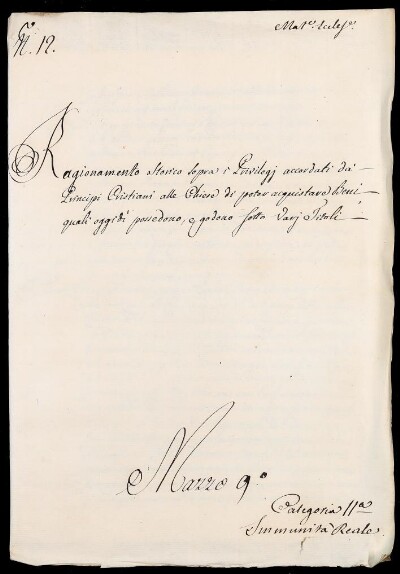 N.° 12.
Mat.e Eccles.e
Ragionamento Storico sopra i Privilegj accordati dà
Principi Cristiani alle Chiese di poter acquistare Beni
quali oggidì possedono, e godono sotto varj Titoli
Mazzo 9.°
Categoria 11.a
Immunità Reale.